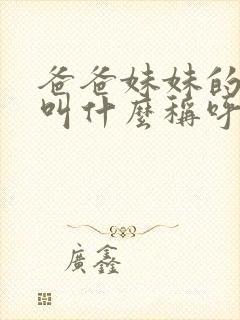 爸爸妹妹的
叫什麼稱呼
廣鑫